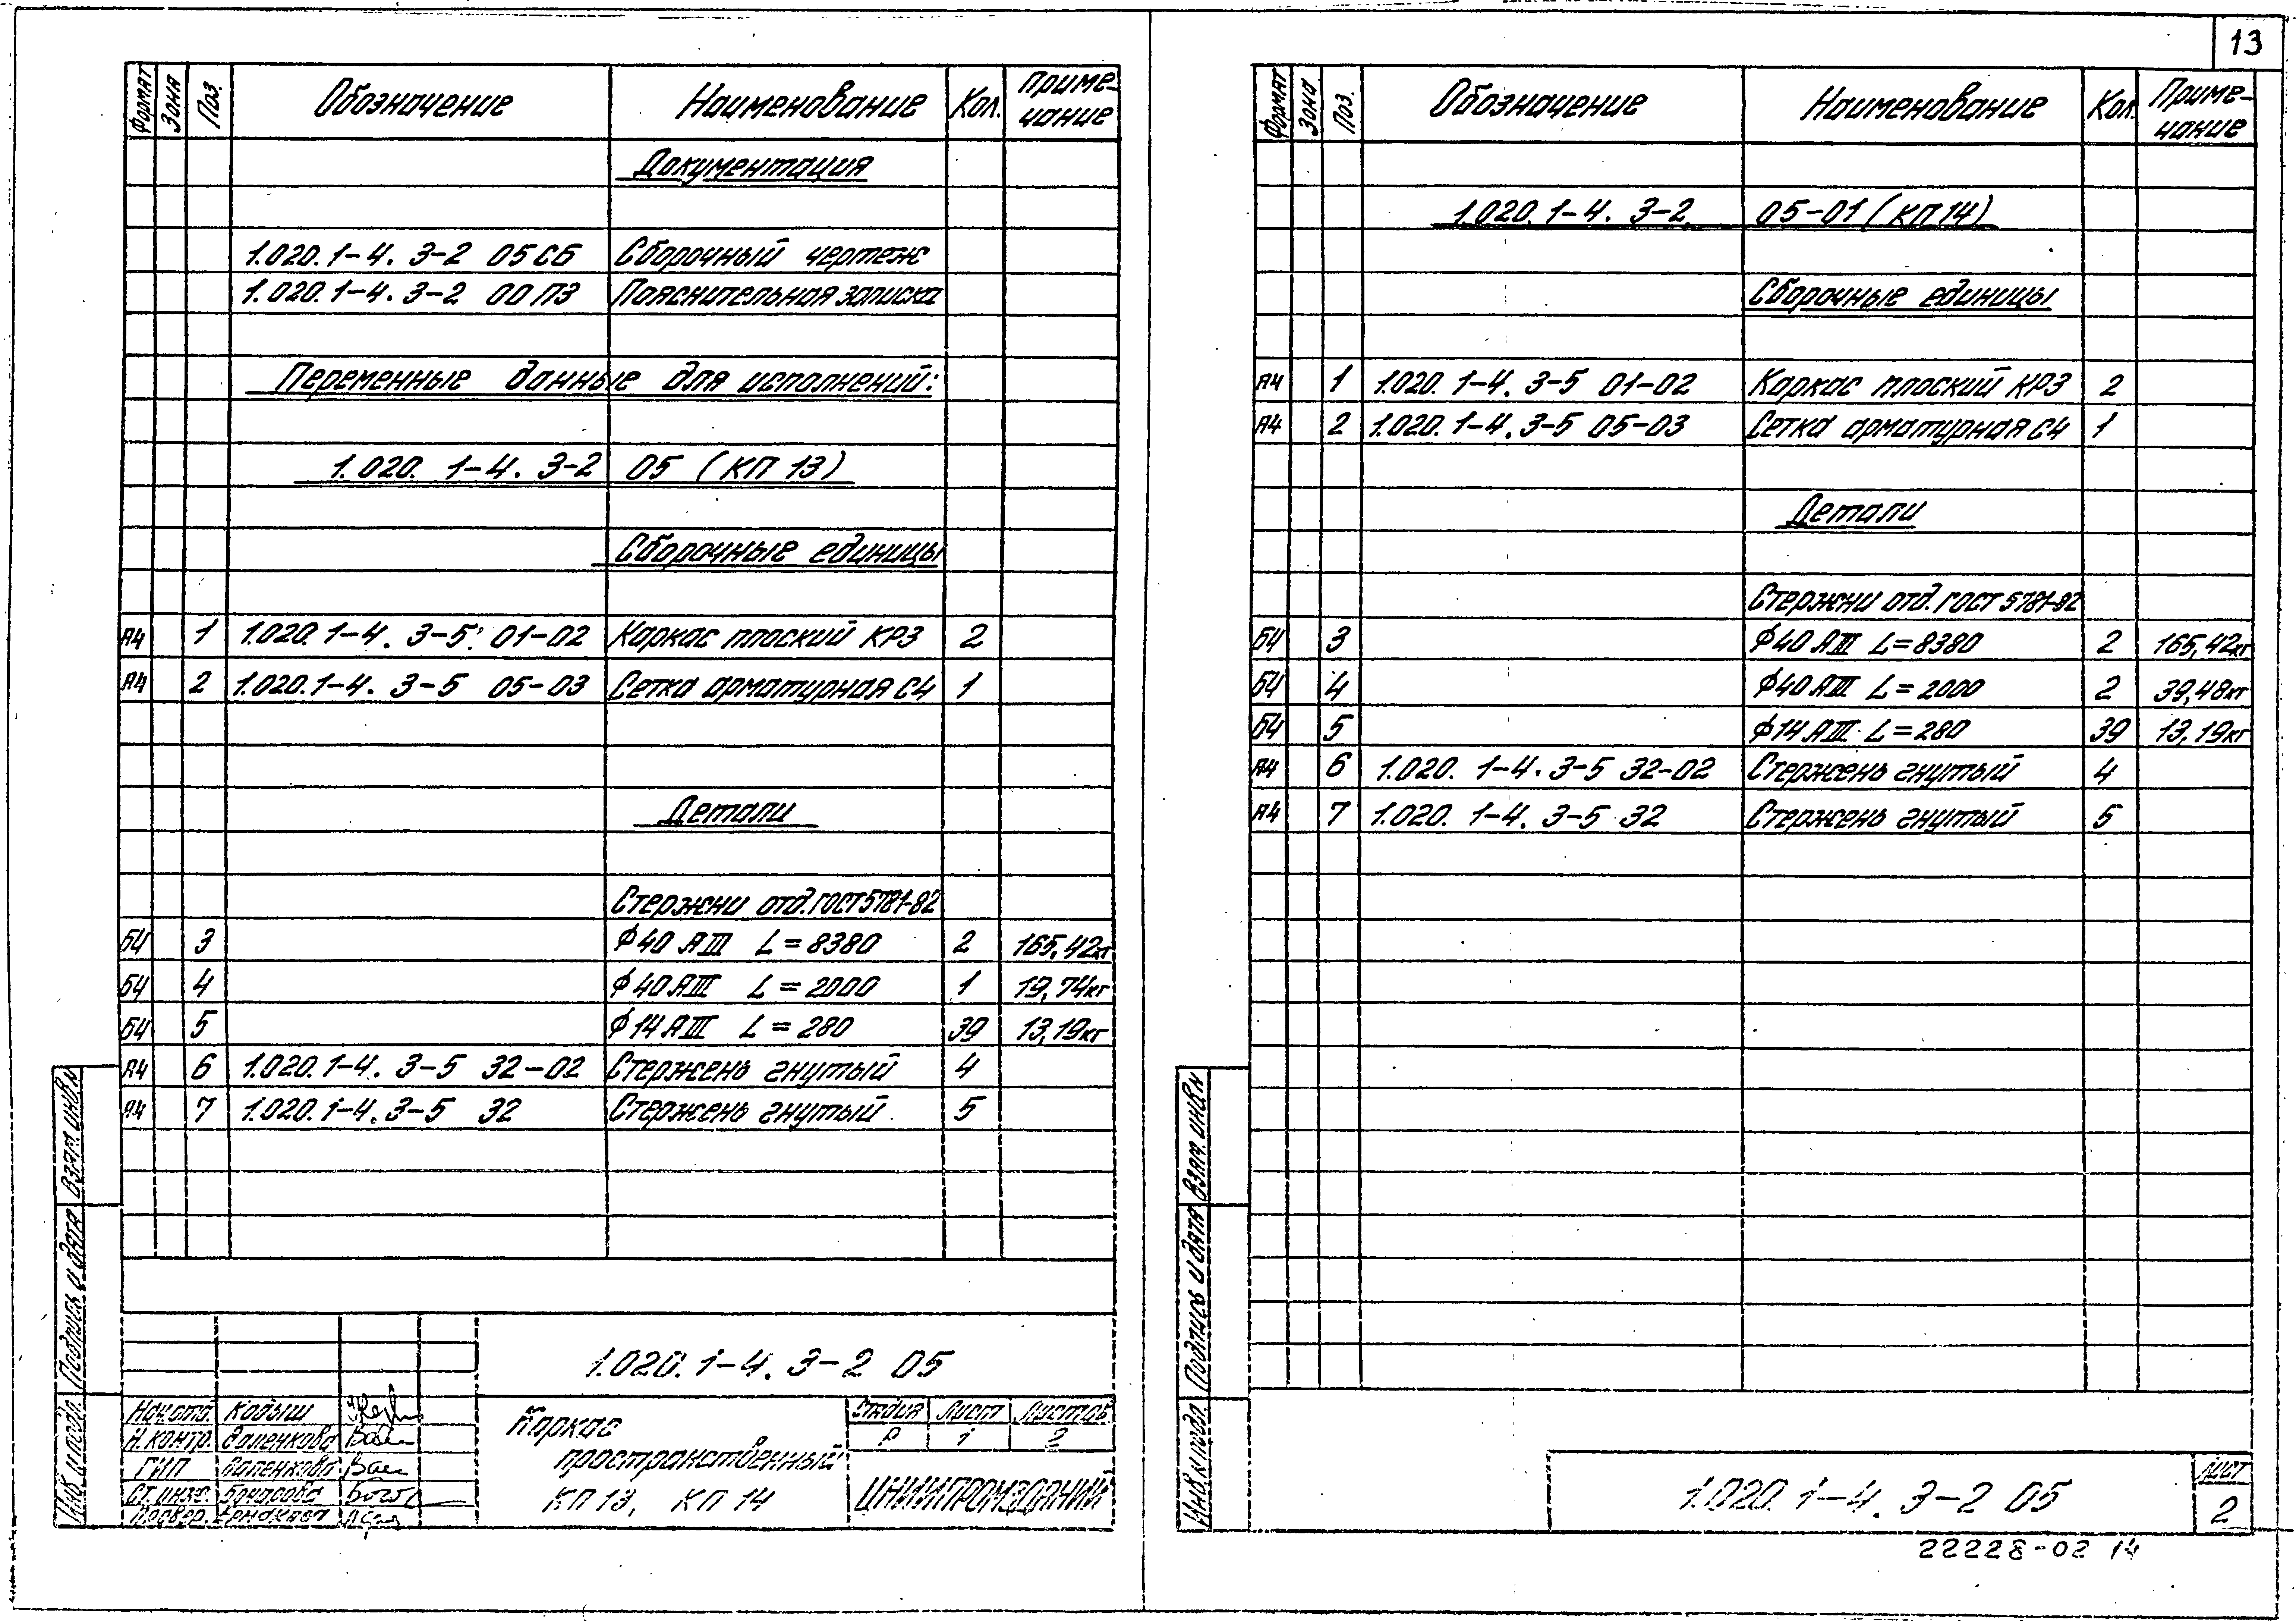 13
Формат Зона Поз. Обозначение Наименование Кол. Примечание
Документация
1.020.1-4. 3-2 05СБ Сборочный чертеж
1.020.1-4. 3-2 00ПЗ Пояснительная записка
Переменные данные для исполнений:
1.020. 1-4. 3-2 05 (КП 13)
Сборочные единицы
А4 1 1.020.1-4. 3-5. 01-02 Каркас плоский КР3 2
А4 2 1.020.1-4. 3-5 05-03 Сетка арматурная С4 1
Детали
Стержни отд. ГОСТ 5781-82
Б4 3 Ф40 АIII L=8380 2 165,42кг
Б4 4 Ф40 АIII L=2000 1 19,74кг
Б4 5 Ф14 АIII L=280 39 13,19кг
А4 6 1.020.1-4. 3-5 32-02 Стержень гнутый 4
А4 7 1.020.1-4. 3-5 32 Стержень гнутый 5
Инв. № подл. Подпись и дата Взам. инв. №
1.020.1-4. 3-2 05
Нач. отд. Кодыш
Н. контр. Валенкова
ГИП
Ст. инж.
Провер. Ермакова
Каркас
пространственный
КП 13, КП 14
Стадия Лист Листов
Р 1 2
ЦНИИПРОМЗДАНИЙ
Формат Зона Поз. Обозначение Наименование Кол. Примечание
1.020.1-4. 3-2 05-01 (КП 14)
Сборочные единицы
А4 1 1.020. 1-4. 3-5 01-02 Каркас плоский КР3 2
А4 2 1.020. 1-4. 3-5 05-03 Сетка арматурная С4 1
Детали
Стержни отд. ГОСТ 5781-82
Б4 3 Ф40 АIII L=8380 2 165,42кг
Б4 4 Ф40 АIII L=2000 2 39,48кг
Б4 5 Ф14 АIII L=280 39 13,19кг
А4 6 1.020. 1-4. 3-5 32-02 Стержень гнутый 4
А4 7 1.020. 1-4. 3-5 32 Стержень гнутый 5
Инв. № подл. Подпись и дата Взам. инв. №
1.020. 1-4. 3-2 05
Лист
2
22228-02 14